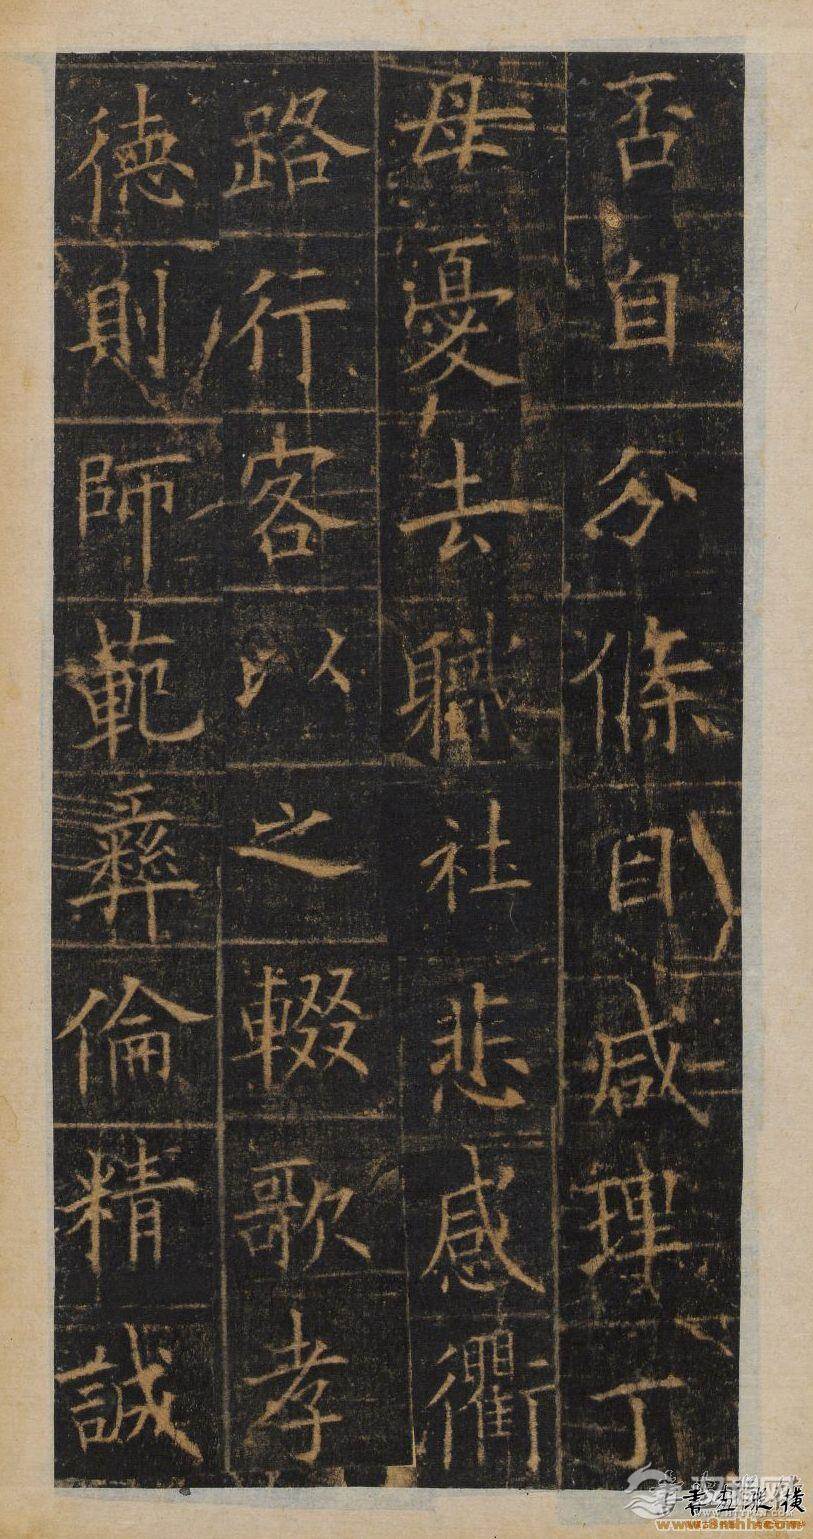 否自分條目咸理丁
母憂去職社悲感衢
路行客以之輟歌孝
德則師範彝倫精誠